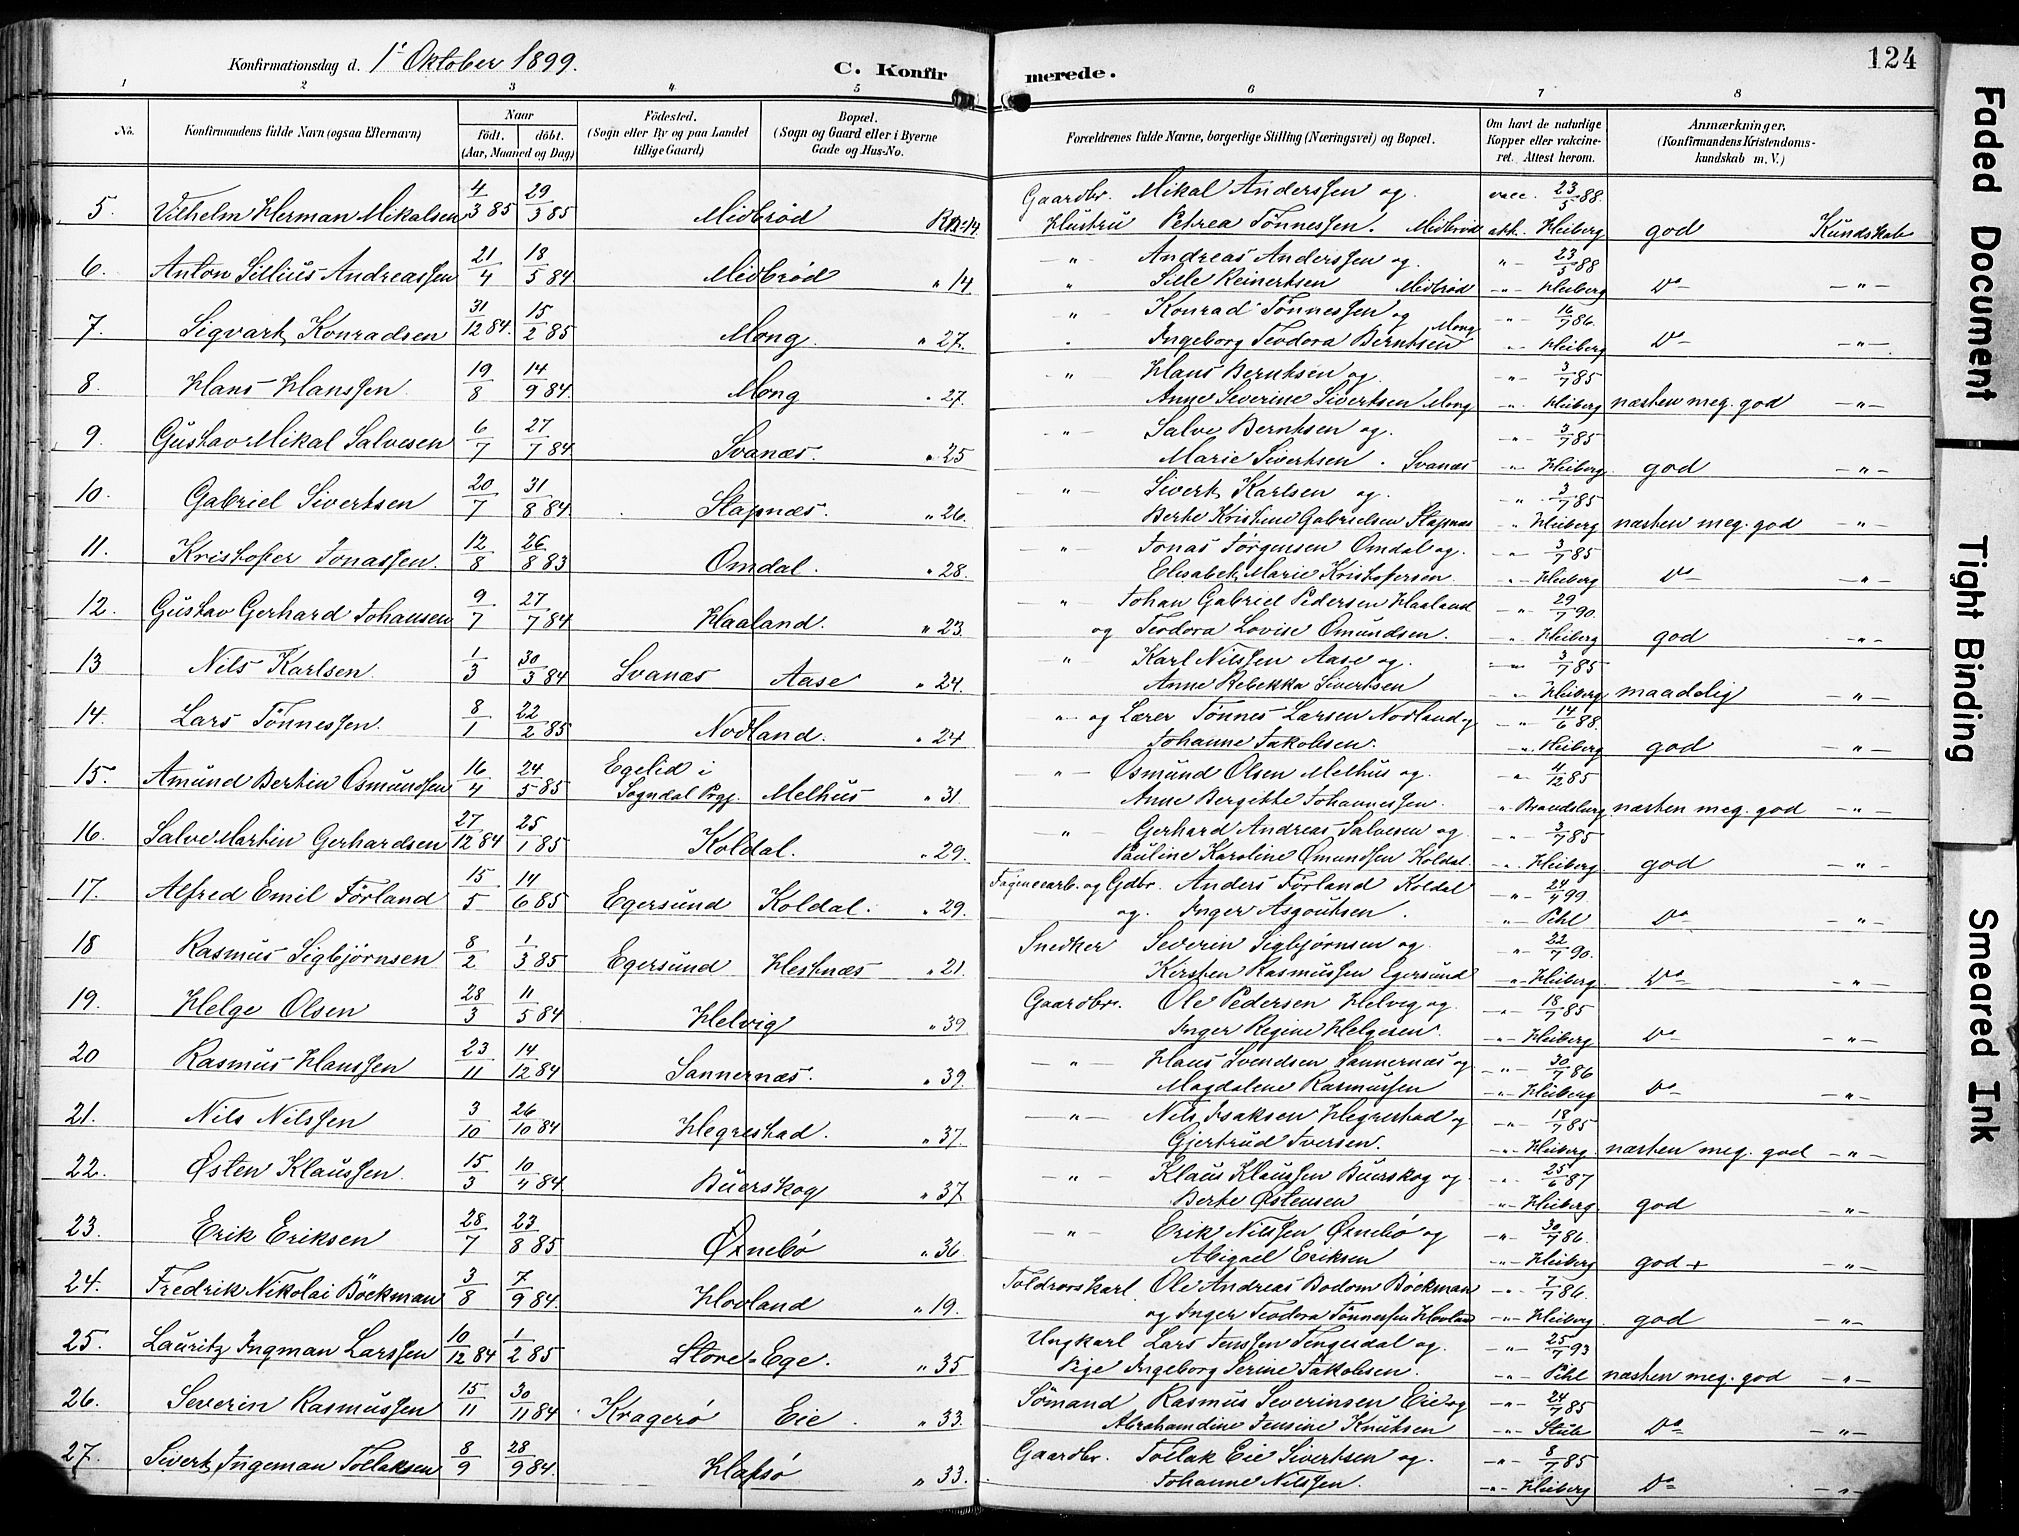 Konfirmationsdag d. 1ste Oktober 1899. C. Konfir merede. 124
1 2 3 4 5 6 7 8
No. Konfirmandens fulde Navn (ogsaa Efternavn) Naar født. døbt. (Aar, Maaned og Dag) Födested. (Sogn eller By og paa Landet tillige Gaard) Bopæl. (Sogn og Gaard eller i Byerne Gade og Hus-No. Forældrenes fulde Navne, borgerlige Stilling (Næringsvei) og Bopæl. Om havt de naturlige Kopper eller vakcineret. Attest herom. Anmærkninger. (Konfirmandens Kristendomskundskab m. V.)
5. Vilhelm Herman Mikalsen 4/3 85 29/3 85 Midbrød 14. Gaardbr. Mikal Anderssen og vacc. 23/5 88.
Hustru Petrea Tønnessen. Midbrød att. Heiberg god Kundskab
6. Anton Sillius Andreassen 21/4 18/5 84 Midbrød " 14 — " — Andreas Anderssen og " — 23/5 88
" Sille Reinertsen Midbrød — " — Heiberg Do — " —
7. Sigvart Konradsen 31/12 84. 15/2 85 Mong. " 27. " — Konrad Tønnessen og Mong — " — 16/7 86.
Ingeborg Teodora Berntsen " Heiberg Do — " —
8. Hans Hanssen 19/8 14/9 84 Mong " 27. " — Hans Berntsen og — " — 3/7 85
Anne Severine Sivertsen Mong " Heiberg næsten meg. god — " —
9. Gustav Mikal Salvesen 6/7 27/7 84 Svanæs. " 25 — " — Salve Berntsen og. — " — 3/7 85
Marie Sivertsen. Svanæs " Heiberg. god — " —
10. Gabriel Sivertsen 20/7 31/8 84 Stapnæs. " 26. — " — Sivert Karlsen og. — " — 3/7 85
Berte Kristine Gabrielsen Stapnæs " Heiberg næsten meg. god — " —
11. Kristofer Jonassen. 12/8 26/8 83 Omdal. " 28. — " — Jonas Jørgensen Omdal og. — " — 3/7 85
Elisabet Marie Kristofersen " Heiberg Do — " —
12. Gustav Gerhard Johansen 9/7 27/7 84 Haaland. " 23. — " — Johan Gabriel Pedersen Haaland — " — 29/7 90
og Teodora Lovise Omundsen. " Heiberg god — " —
13 Nils Karlsen 1/3 30/3 84 Svanæs Aase " 24. " — Karl Nilssen Aase og. — " — 3/7 85
Anne Rebekka Sivertsen " Heiberg maadelig — " —
14. Lars Tønnessen. 8/1 22/2 85 Nodland. " 24 " — og Lærer Tønnes Larsen Nodland og — " — 14/6 88
Johanne Jakobsen. " Heiberg god — " —
15. Amund Bertin Osmundsen 16/4 24/5 85 Egelid i Sogndal Prgj. Melhus " 31. — " — Osmund Olsen Melhus og — " — 4/12 85
Anne Bergitte Johannessen. " Brandsberg næsten meg. god — " —
16. Salve Martin Gerhardsen 27/12 84 25/1 85 Koldal. " 29. — " — Gerhard Andreas Salvesen og — " — 3/7 85
Pauline Karoline Omundsen Koldal. — " — Heiberg god — " —
17. Alfred Emil Førland 15/5 14/6 85 Egersund Koldal. " 29. og Gdbr. Anders Førland Koldal — " — 24/4 99.
og. Inger Asgoutsen. — " — Pihl Do — " —
18 Rasmus Sigbjørnsen 8/2 1/3 85 Egersund Hestnæs " 21. Snedker Severin Sigbjørnsen og — " — 22/7 90.
Kirsten Rasmussen Egersund — " — Heiberg Do — " —
19. Helge Olsen 28/3 11/5 84 Helvig " 39. Gaardbr. Ole Pedersen Helvig og — " — 18/7 85
Inger Regine Helgesen. — " — Heiberg Do — " —
20 Rasmus Hanssen 23/11 14/12 84 Sannernæs. " 39. — " — Hans Svendsen Sannernæs og — " — 30/7 86
Magdalene Rasmussen — " — Heiberg Do — " —
21. Nils Nilssen 3/10 26/10 84 Hegrestad. " 37 — " — Nils Isaksen Hegrestad og — " — 18/7 85
Gjertrud Iversen. — " — Heiberg næsten meg. god — " —
22. Østen Klaussen. 15/3 10/4 84 Buerskog " 37. — " — Klaus Klaussen Buerskog og. — " — 25/6 87
Berte Østensen — " — Heiberg god — " —
23. Erik Eriksen 28/7 23/8 85 Ørnebø " 36. — " — Erik Nilssen Ørnebø og — " — 30/7 86.
Abigael Eriksen — " — Heiberg god + — " —
24. Fredrik Nikolai Bøckman 3/8 7/9 84 Hovland " 19. Toldrorskarl. Ole Andreas Bodom Bøckman — " — 7/7 86.
og Inger Teodora Tønnessen Hovland — " — Heiberg god — " —
25. Lauritz Ingman Larssen 10/12 84 1/2 85 Store-Ege. " 35 Ungkarl Lars Jenssen Tengesdal og. — " — 25/7 93
Pige Ingeborg Serine Jakobsen. — " — Pihl næsten meg. god — " —
26. Severin Rasmussen 15/11 30/11 84 Kragerø Eie " 33. Sømand Rasmus Severinsen Eie og — " — 24/7 85
Abrahamdine Jensine Knutsen — " — Stub Do — " —
27. Sivert Ingeman Tollaksen 8/9 28/9 84. Hafsø " 33. Gaardbr. Tollak Eie Sivertsen og. — " — 8/7 85
Johanne Nilssen. — " — Heiberg Do — " —
Faded Document
Tight Binding
Smeared Ink